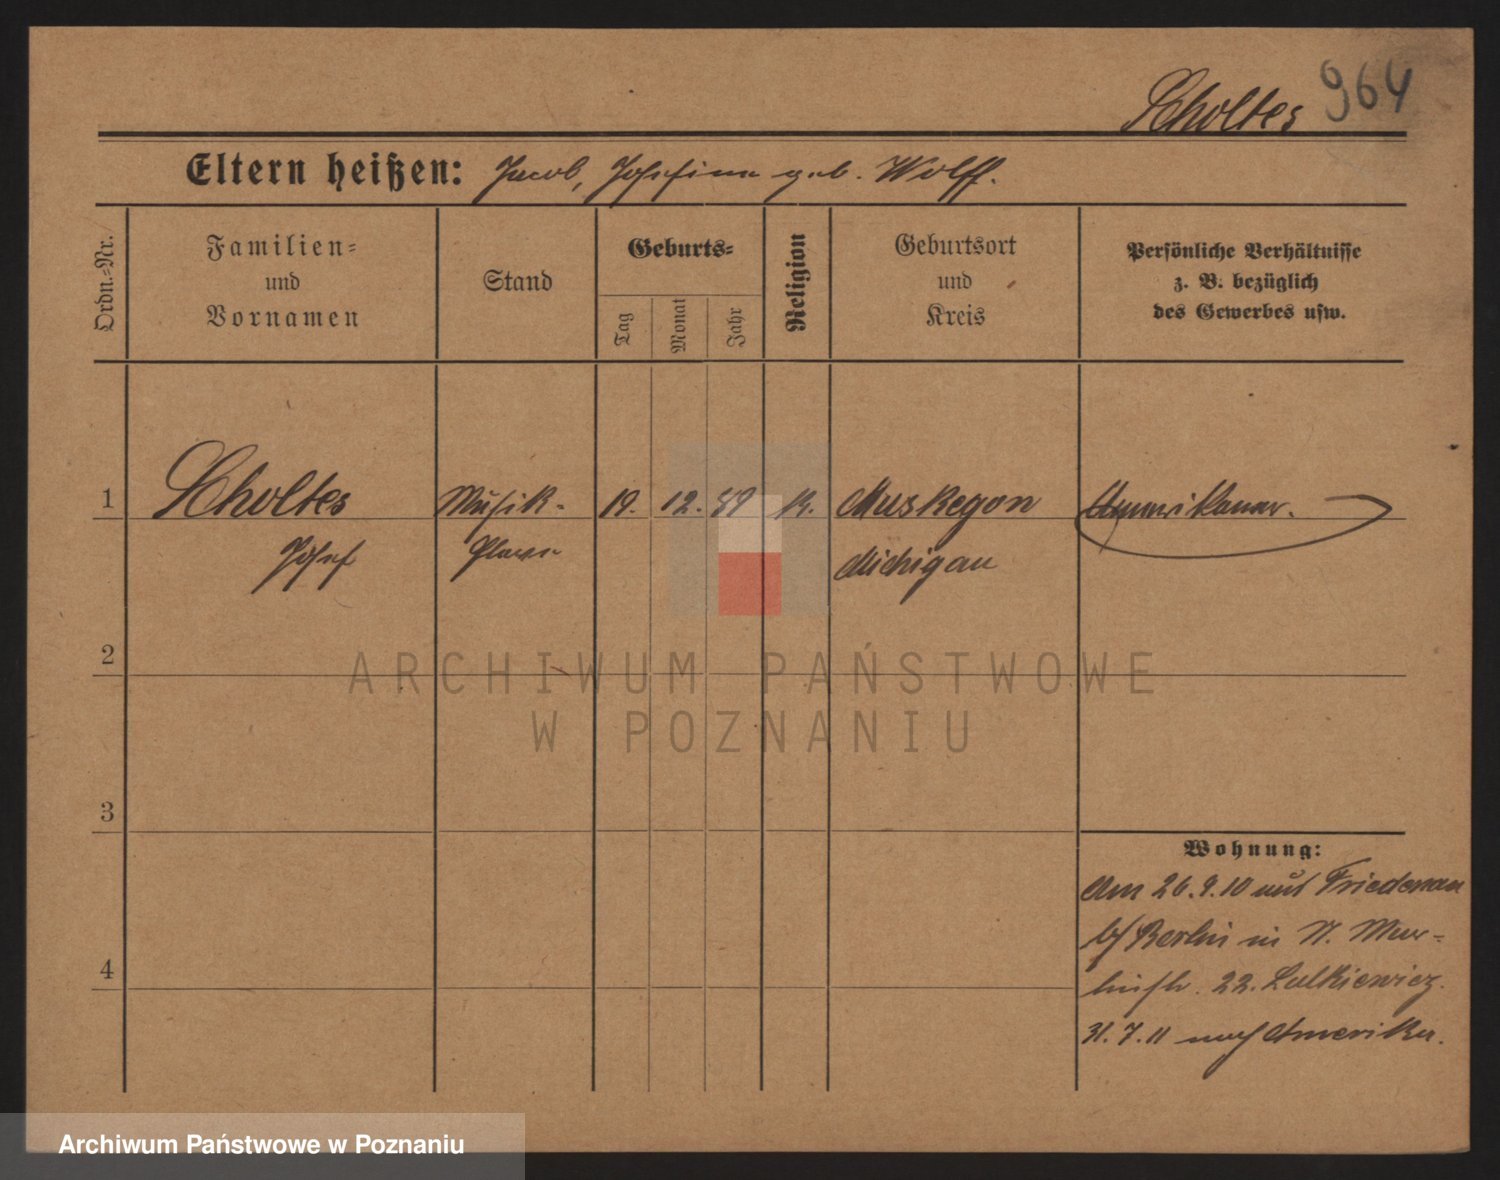 Scholtes 964
Eltern heißen: Jacob, Josefine geb. Wolff.
Ordn.-Nr.
Familien-
und
Vornamen
Stand
Geburts-
Tag
Monat
Jahr
Religion
Geburtsort
und
Kreis
Persönliche Verhältnisse
z. B. bezüglich
des Gewerbes usw.
1 Scholtes Musik- 19. 12. 89 k. Muskegon Amerikaner.
Josef Michigan
2
3
4
Wohnung:
Am 26.9.10 aus Friedenau
b/ Berlin in St. Mar-
tinstr. 22. Lalkiewicz.
31.7.11 nach Amerika.
ARCHIWUM PAŃSTWOWE
W POZNANIU
Archiwum Państwowe w Poznaniu